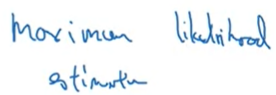 Maximum likelihood
estimator